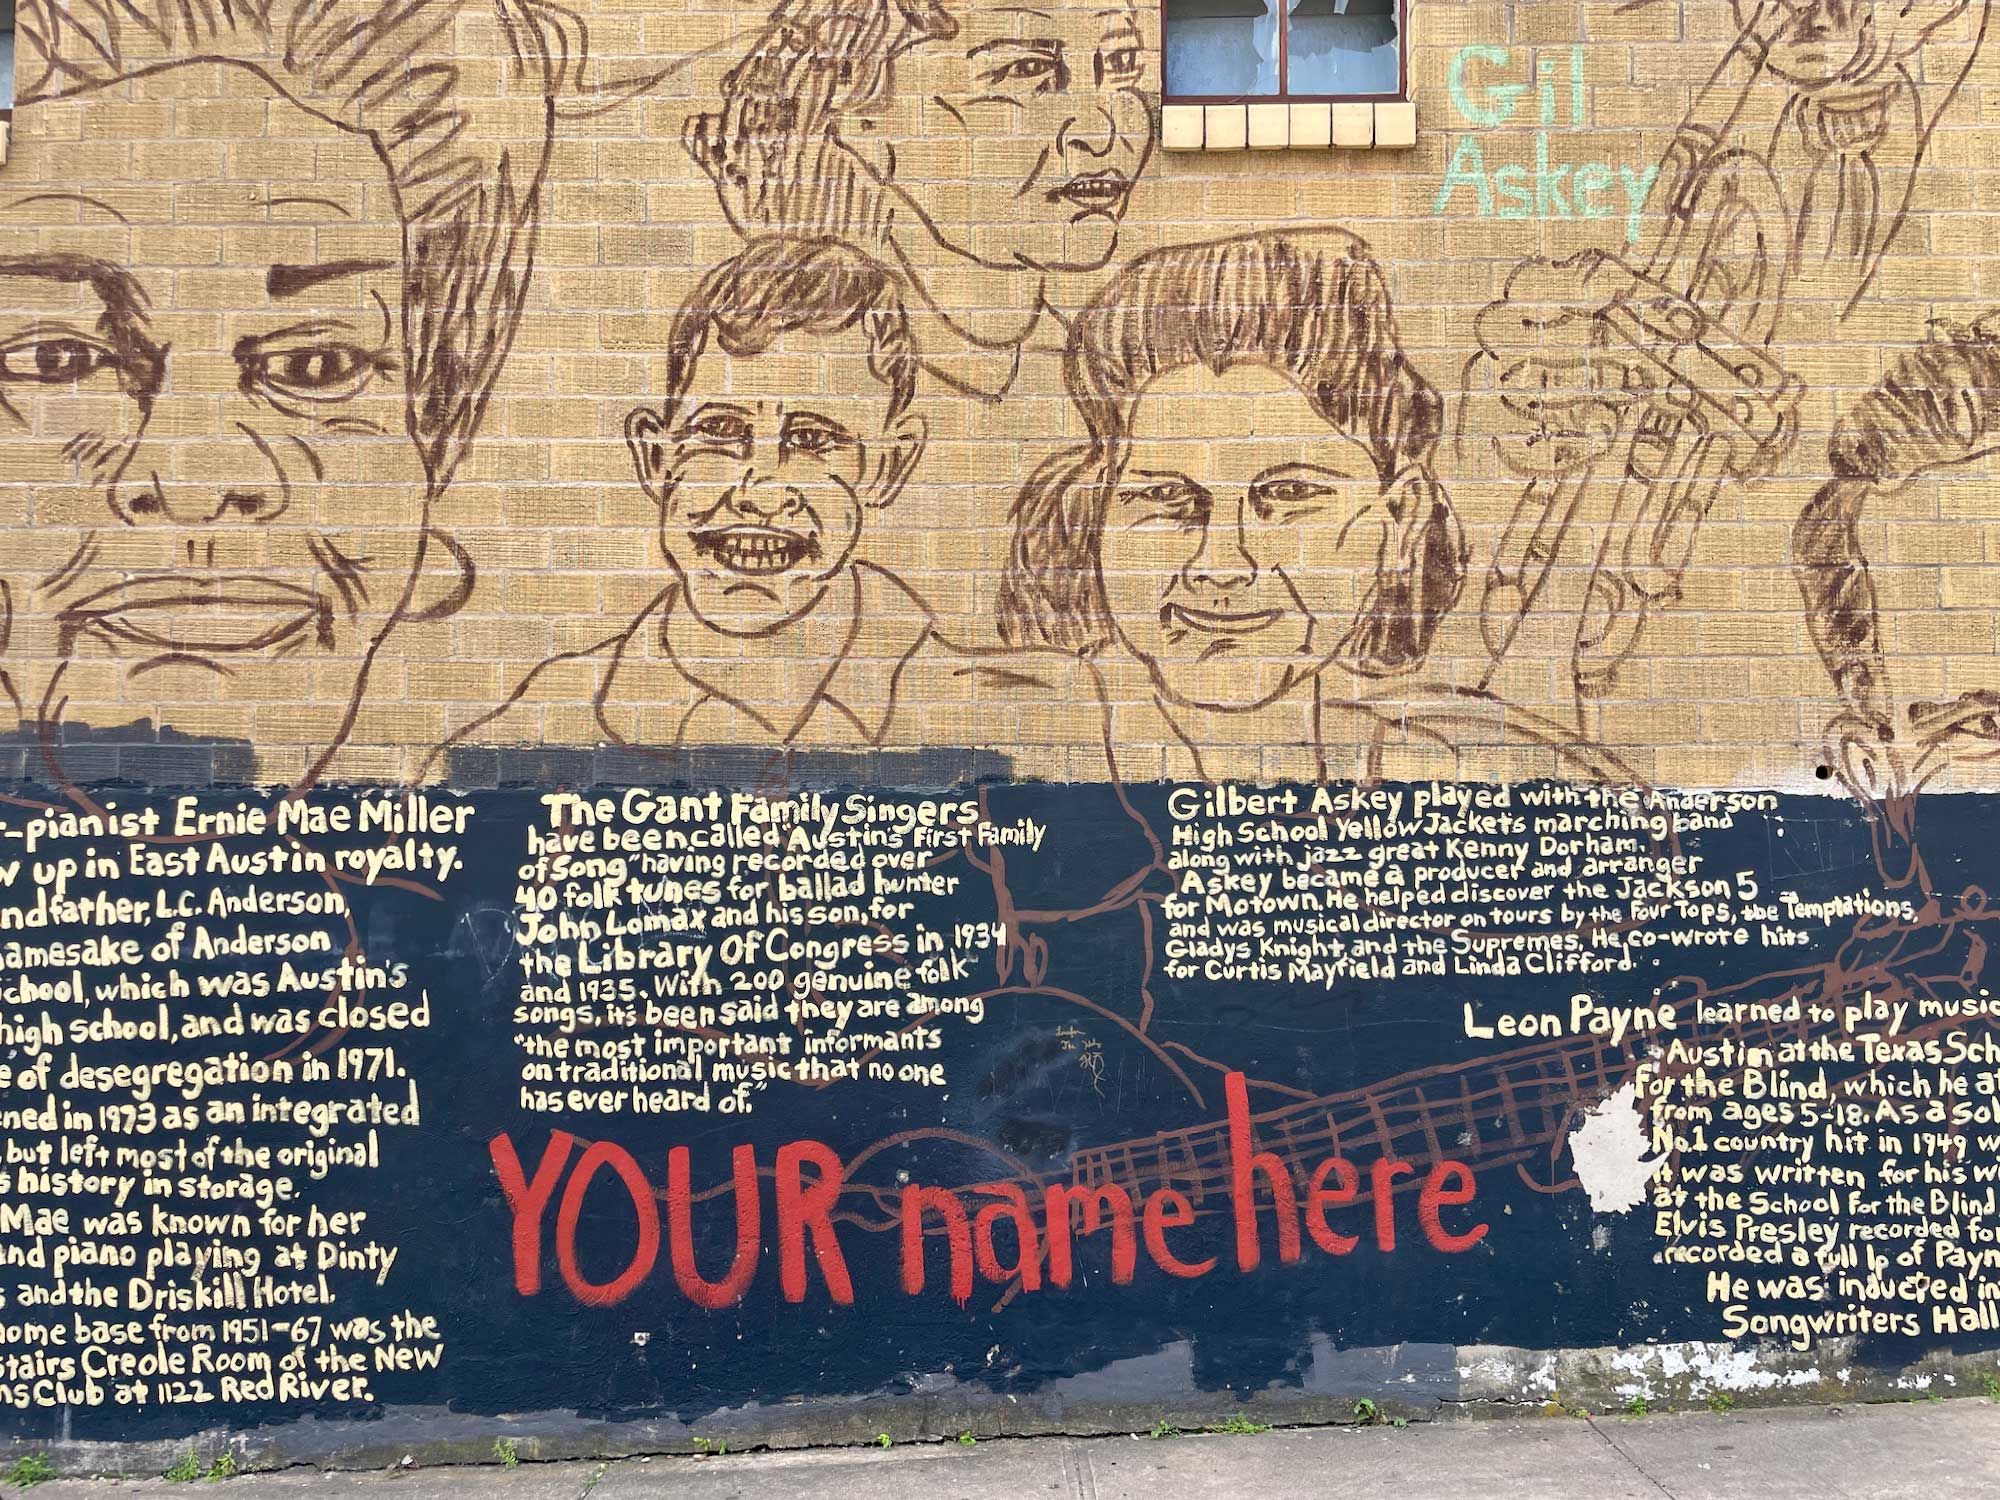 Gil
Askey
r-pianist Ernie Mae Miller
w up in East Austin royalty.
ndfather, L.C. Anderson,
amesake of Anderson
chool, which was Austin's
high school, and was closed
e of desegregation in 1971.
ned in 1973 as an integrated
, but left most of the original
s history in storage.
Mae was known for her
nd piano playing at Dinty
s and the Driskill Hotel.
ome base from 1951-67 was the
stairs Creole Room of the New
ns Club at 1122 Red River.
The Gant Family Singers
have been called "Austin's First Family
of Song" having recorded over
40 folk tunes for ballad hunter
John Lomax and his son, for
the Library Of Congress in 1934
and 1935. With 200 genuine folk
songs, it's been said they are among
"the most important informants
on traditional music that no one
has ever heard of."
Gilbert Askey played with the Anderson
High School Yellow Jackets marching band
along with jazz great Kenny Dorham.
Askey became a producer and arranger
for Motown. He helped discover the Jackson 5
and was musical director on tours by the Four Tops, the Temptations,
Gladys Knight, and the Supremes. He co-wrote hits
for Curtis Mayfield and Linda Clifford.
Leon Payne learned to play music
Austin at the Texas Sch
For the Blind, which he at
from ages 5-18. As a sol
No.1 country hit in 1949 w
it was written for his w
at the School For the Blind
Elvis Presley recorded for
recorded a full lp of Payn
He was inducted in
Songwriters Hall
YOUR name here